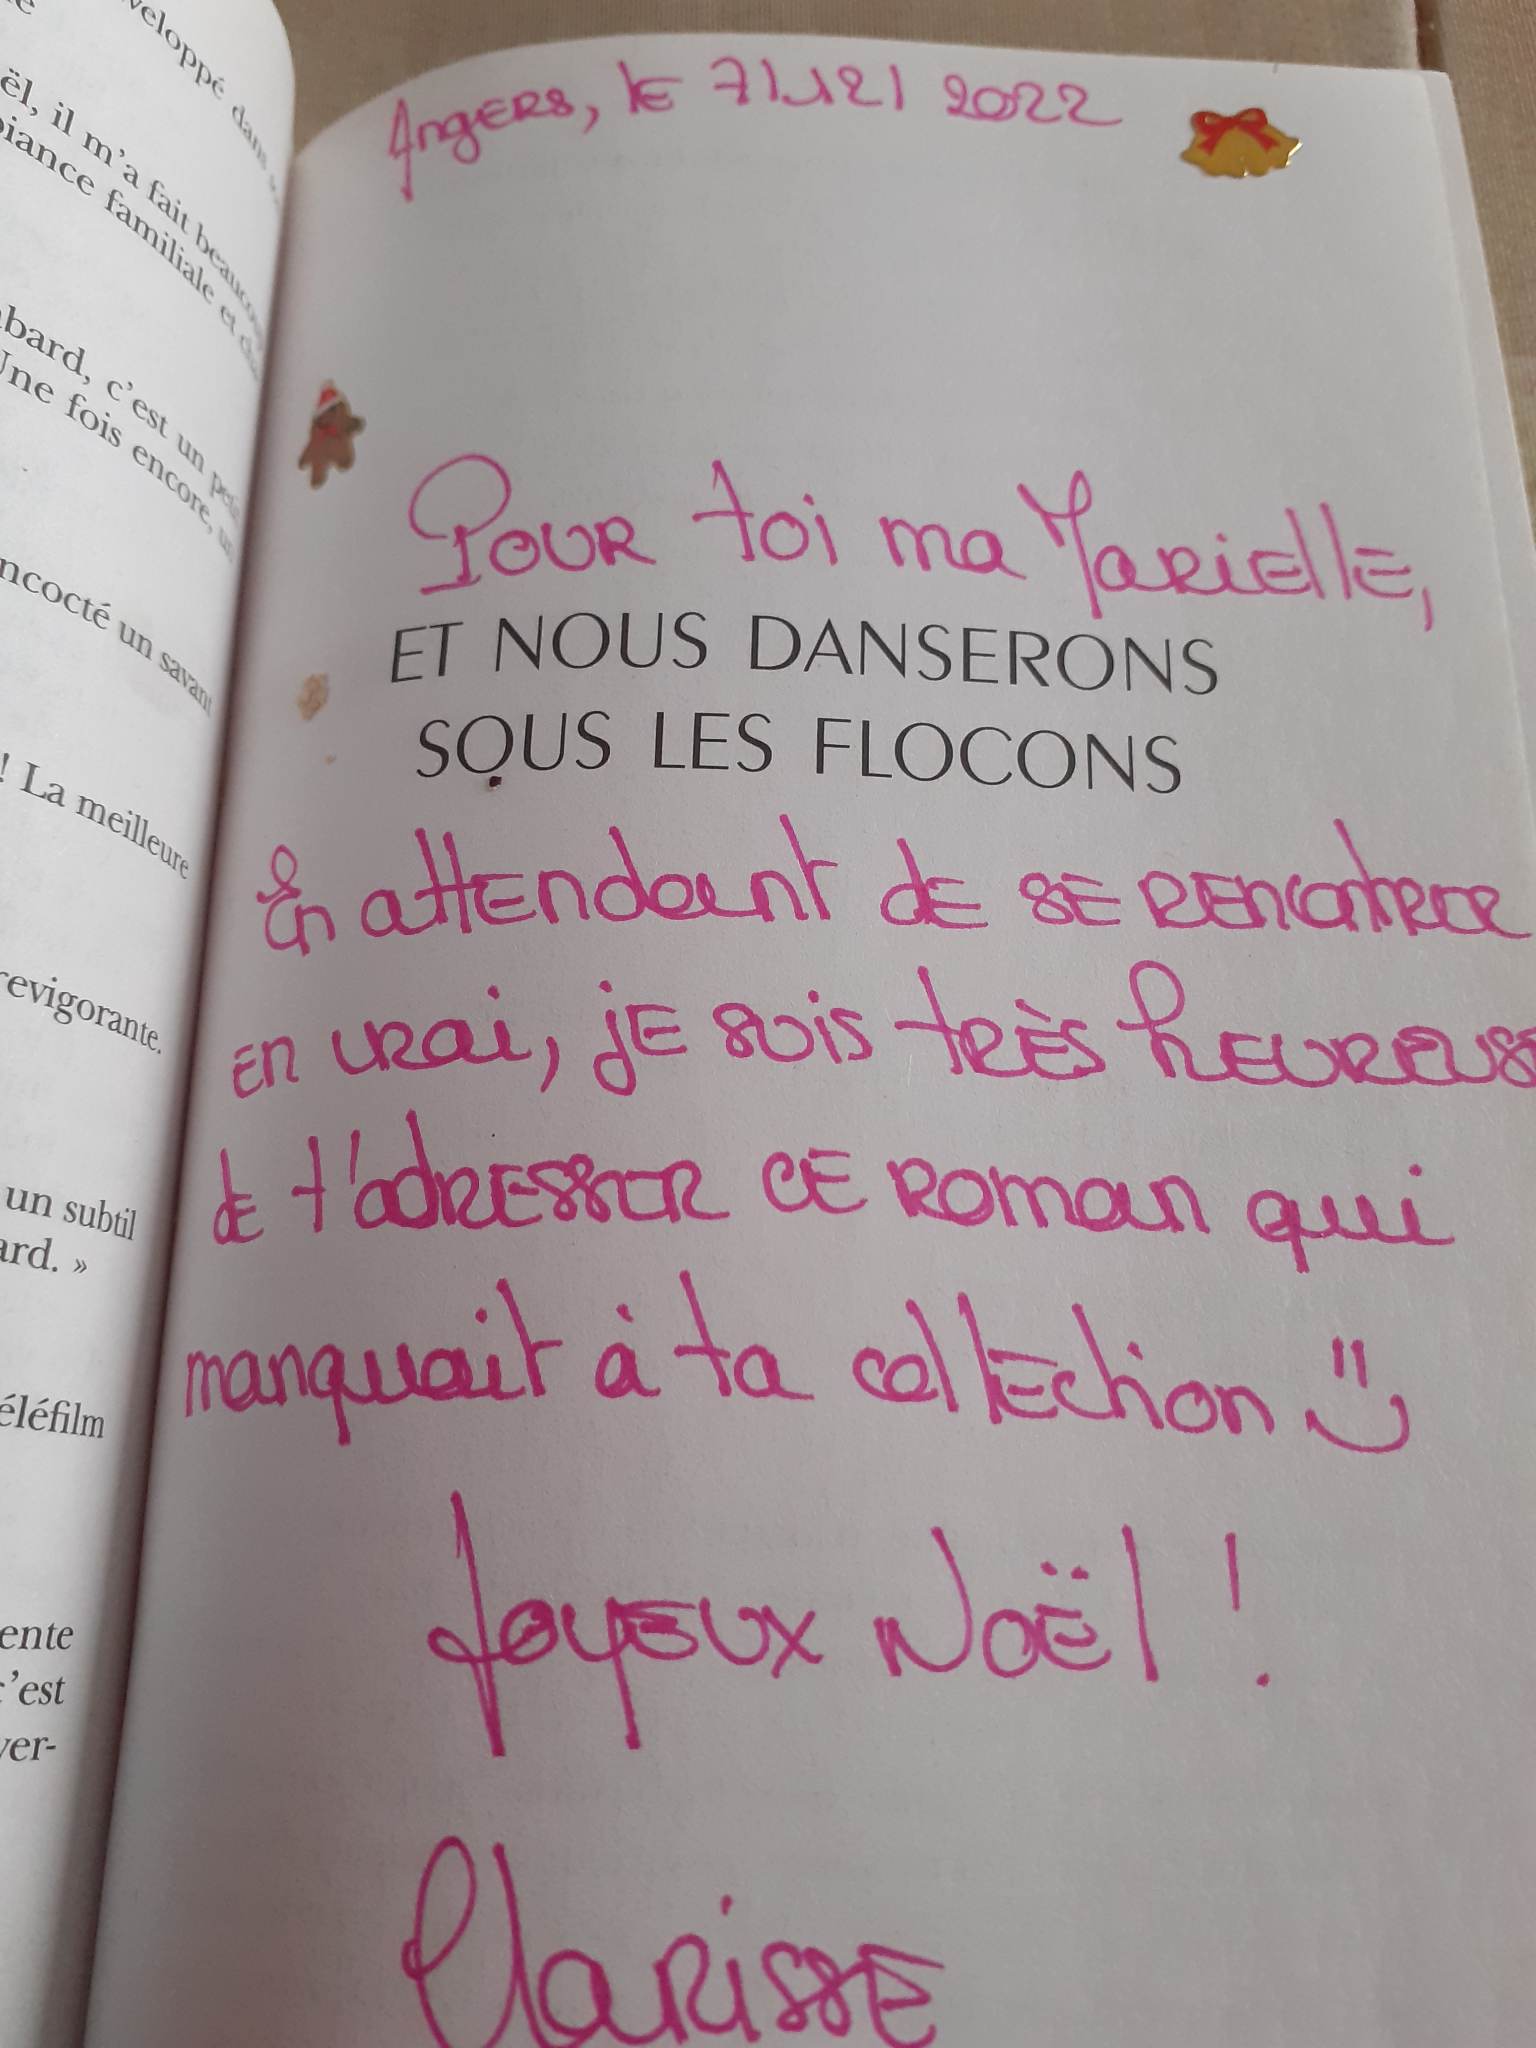 veloppé dans
ël, il m'a fait beaucoup
biance familiale et
bard, c'est un petit
Une fois encore, un
ncocté un savant
! La meilleure
revigorante.
un subtil
ard. »
éléfilm
ente
c'est
ver-
Angers, le 7/12/2022
Pour toi ma Marielle,
ET NOUS DANSERONS
SOUS LES FLOCONS
En attendant de se rencontrer
en vrai, je suis très heureuse
de t'adresser ce roman qui
manquait à ta collection
Joyeux Noël !
Clarisse